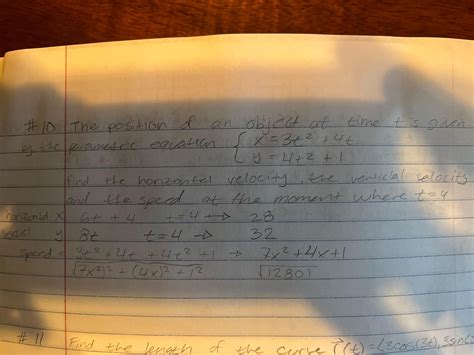 #10 The position of an object at time t is given
by the parametric equation { x = 3t² + 4t
y = 4t² + 1
Find the horizontal velocity, the vertical velocity
and the speed at the moment where t=4
horizontal x 6t + 4 t=4 → 28
y 8t t=4 → 32
speed = 3t² + 4t + 4t² + 1 → 7x² + 4x + 1
√(7x²)² + (4x)² + 1² √1280
#11 Find the length of the curve r(t) = <3cos(3t), 3sin